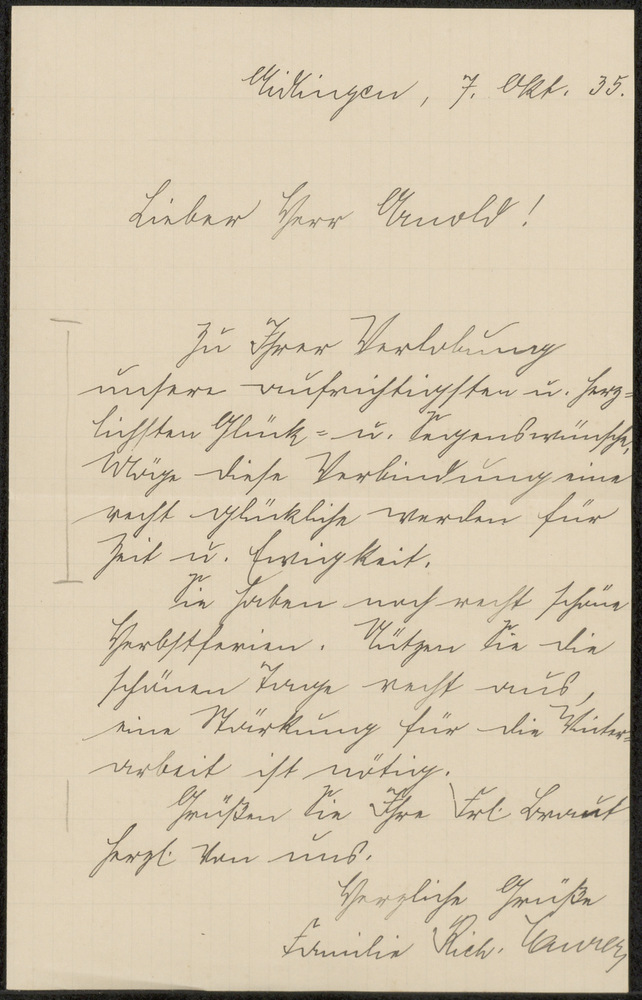 Aidlingen, 7. Okt. 35.
Lieber Herr Arnold!
Zu Ihrer Verlobung
unsere aufrichtigsten u. herz=
lichsten Glück= u. Segenswünsche,
Möge diese Verbindung eine
recht glückliche werden für
Zeit u. Ewigkeit.
Sie haben noch recht schöne
Herbstferien. Nützen Sie die
schönen Tage recht aus,
eine Stärkung für die Winter=
arbeit ist nötig.
Grüßen Sie Ihre Frl. Braut
herzl. von uns.
Herzliche Grüße
Familie Rich.